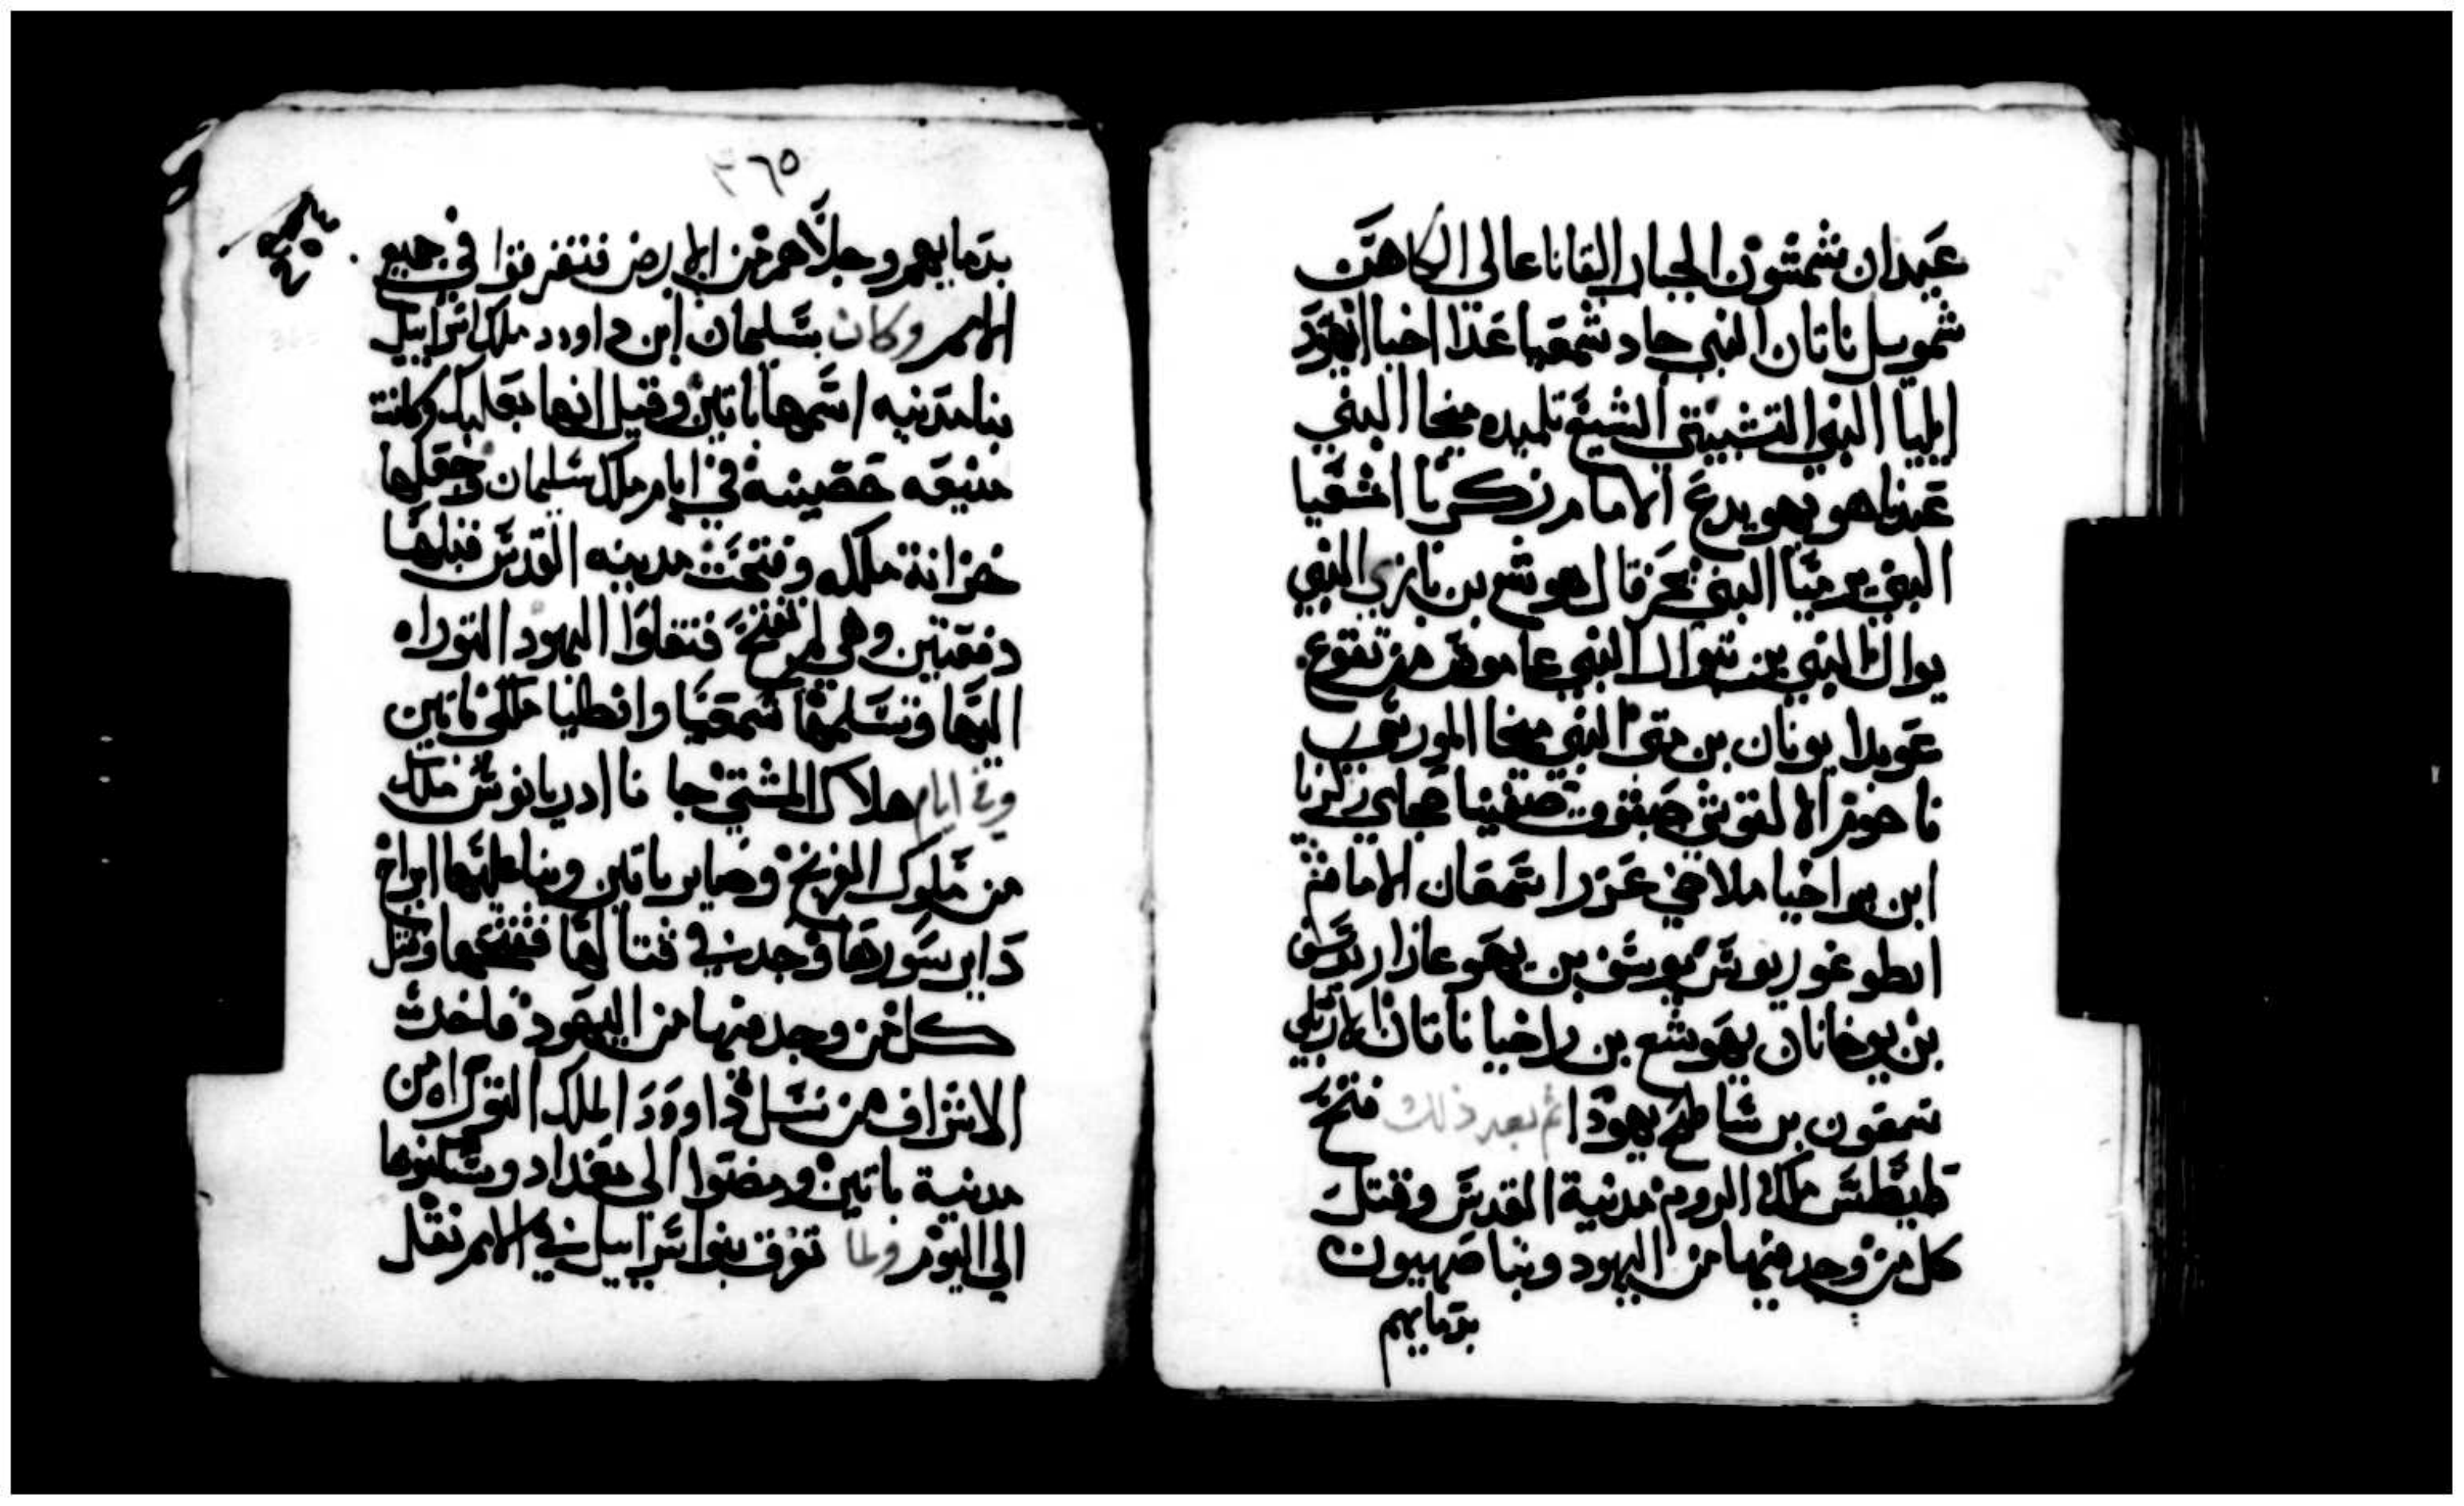 عبدان شمشون الجبار القانا عالي الكاهن
شمويل ناتان النبي جاد شمعيا عدا اخيا انهود
ايليا النبي التشبيتي الشيخ تلميده ميخا النبي
عبدياهو يهويدع الامام زكريا اشعيا
النبي يرميا النبي حزقال هوشع بن يازي النبي
يوال النبي بن تتوال النبي عاموص من تقوع
عوبدا يونان بن متى النبي ميخا المورثي
ناحوم الالقوشي حبقوق صفينا حجاي زكريا
ابن براخيا ملاخي عزرا شمعان الامام
ابطوغوريوس يوسف بن يهوعازار يوسف
بن يوخانان يهوشع بن راخيا ناتان الاربلي
شمعون بن شاطح يهودا ثم بعد ذلك فتح
طيطش ملك الروم مدنية القدس وقتل
كل من وجد فيها من اليهود وبنا صهيون
بدمايهم
٣٦٥
بدمايهم وجلاهم من الارض فتفرقوا في جميع
الامم وكان سليمان ابن داوود ملك اسراييل
بنا مدنيه اسمها باتين وقيل انها بعلبك وكانت
منيعه حصينة في ايام ملك سليمان وجعلها
خزانة ملكه وفتحت مدينه القدس قبلها
دفعتين وهي لم تفتح فنقلوا اليهود التوراه
اليها وتسلمها شمعيا وانطليا ملكي باتين
وفي ايام هلاك المشتي جا نا ادريانوس ملك
من ملوك الفرنج وحاير باتين وبنا عليها ابراج
داير سورها وجد في قتالها ففتحها وقتل
كل من وجد فيها من اليهود فاخدت
الاشراف من نسل داوود الملك التوراه من
مدنية باتين ومضوا الي بغداد وسكنوها
الي اليوم ولما تفرق بنوا سراييل في الامم نقل